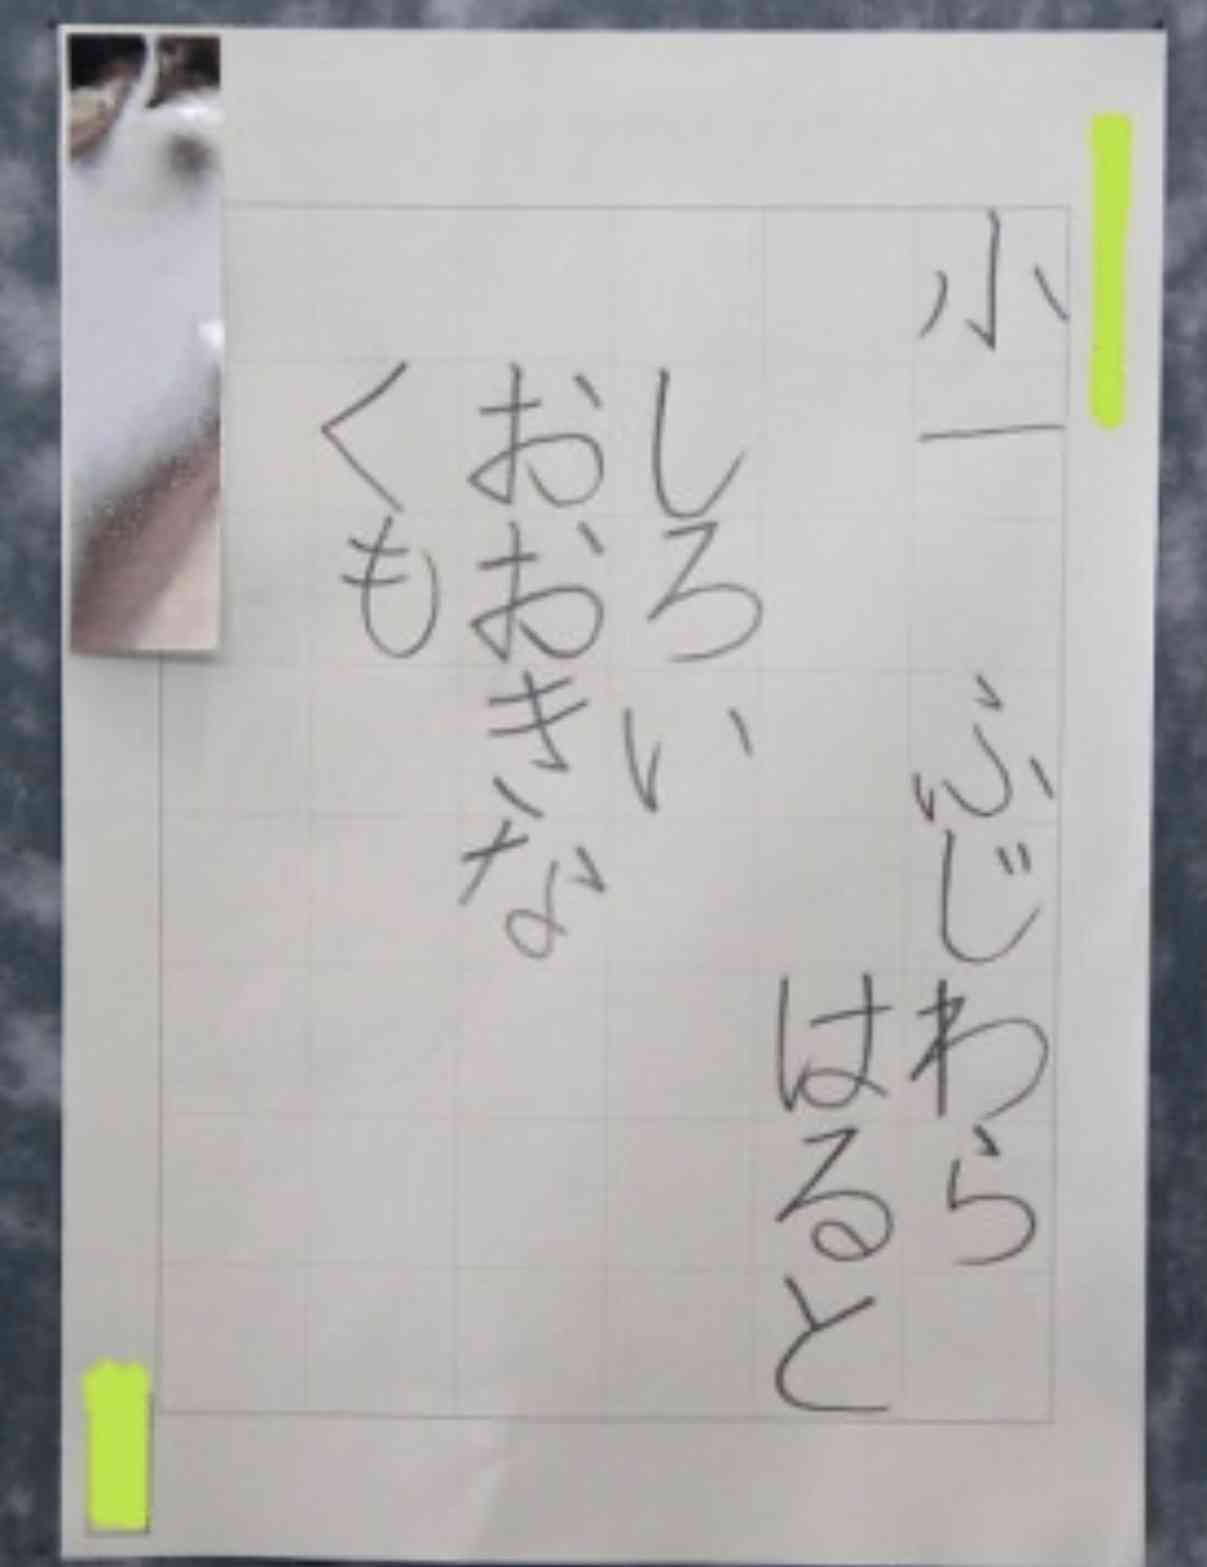 小一 ふじわら
はると
しろい
おおきな
くも